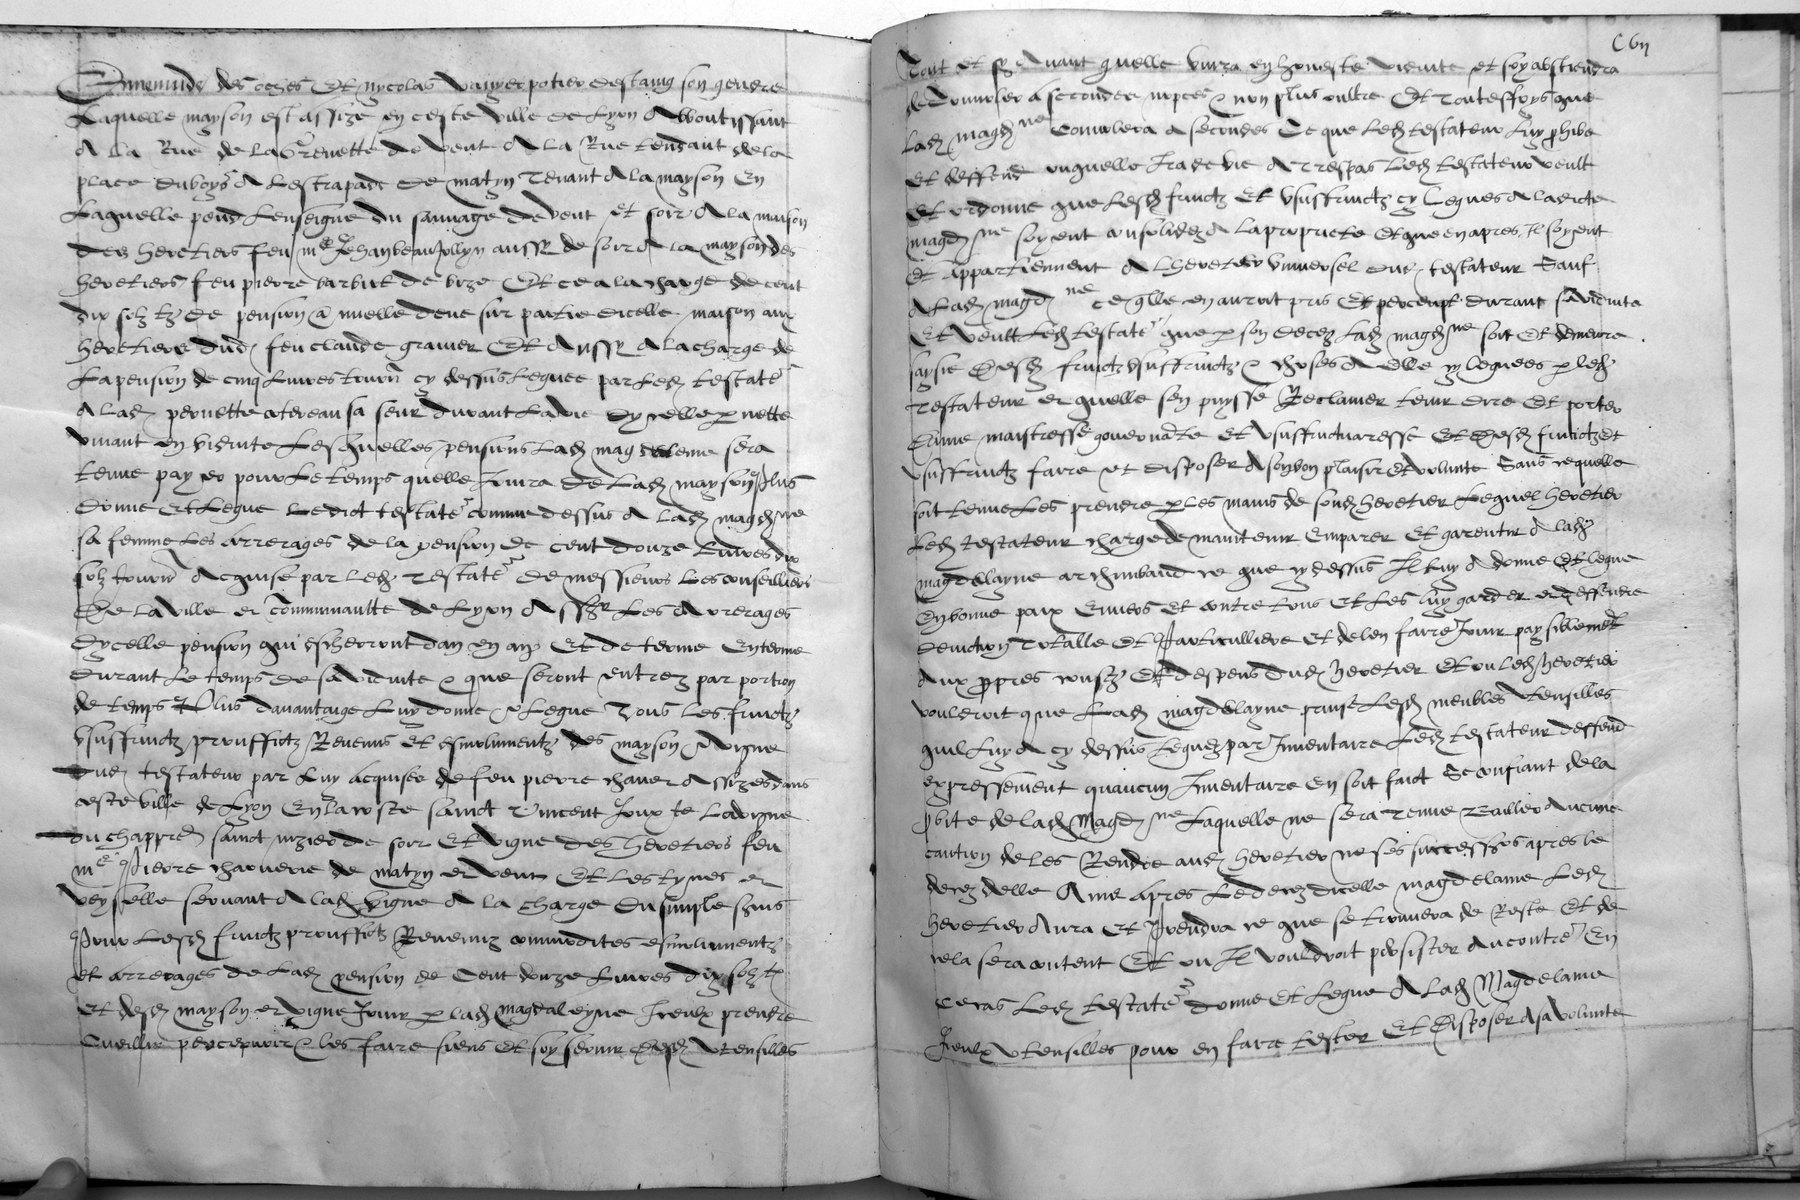 Ennemonde des oches Et nycolas vanyer potier destaing son gendre
Laquelle mayson est assize en ceste ville de Lyon Aboutissant
A La Rue de La Grenette de vent A La Rue tendant de la
place du boys A Lestrapade De matyn Tenant A la mayson En
Laquelle pend Lenseigne du sauvage de vent et soir A la maison
des heretiers feu me Jehan beaujollyn aussy de soir A la mayson des
heretiers feu pierre barbut de bize Et ce a la charge de cent
dix solz tz De pension annuelle deue sur partie dicelle maison aux
heretiers dud feu claude gravier Et Aussy A la charge de
La pension de cinq Livres tourn cy dessus Leguee par Led testate
A lad pernette sa seur durant La vie Dycelle pernette
vivant en viduite Lesquelles pensions Lad magdeleine sera
tenue payer pour Le temps quelle Jouira De Lad mayson Plus
Donne Et Legue Ledict testate comme dessus A Lad magd ne
sa femme Les Arrerages de la pension De cent douze Livres dix
solz tourn Acquise par Led Testate De messieurs Les conseilliers
De La ville et communaulte de Lyon Les Arrerages
Dycelle pension qui escherront dan en an Et de terme En terme
durant Le temps De sa viduite que seront entrez par portion
de temps Plus davantaige Luy donne Legue Tous Les fruictz
Usuffruictz prouffictz Revenus Et esmolumentz des mayson vigne
Dud testateur par Luy acquises de feu pierre Assizes dans
ceste ville de Lyon En La coste sainct Vincent Jouxte La vigne
du chappre sainct nizier de soir Et vigne des heretiers feu
me Pierre de matyn et vent Et Les tynes et
veysselle servant A Lad vigne A la charge Du simple servis
Pour Lesd fruictz prouffictz Revenuz commodites esmolumentz
et arrerages de Lad pension de Cent douze Livres dix solz tz
Et desd mayson et vigne Jouir p lad magdaleyne Iceulx prendre
Cueillir percepvoir Les faire siens Et soy servir Desd Utensilles
C vii
Tout Et sy Avant quelle vivra en honneste viduite et soy abstiendra
de convoler A secondes nopces non plus oultre Et Touteffoys que
Lad magd ne Convolera A secondes Ce que Led testateur Luy phibe
Et deffend ou quelle Ira de vie A Trespas Led testateur veult
Et ordonne que Lesd fruictz Et Usuffruictz cy Legues A ladicte
magd ne soyent consolidez A La propriete Et que en apres Il soyent
Et Appartiennent A Lheretier Universel Dud testateur Sauf
A Lad magd ne ce qlle en auroit pris Et perceupt durant sa viduite
Et veult Led testate que p son Decez Lad magd ne soit Et demeure
saysie Desd fruictz Usuffruictz choses A elle cy Leguees p led
Testateur et quelle sen puysse Reclamer tenir dire Et porter
Dame maistresse gouvernate Et Usuffructuaresse Et Desd fruictz Et
Usuffruictz faire et disposer A son bon plaisir Et volunte Sans ce quelle
soit tenue Les prendre p Les mains de sond heretier Lequel heretier
Led testateur charge de maintenir Emparer Et garentir A lad
magdelayne archimbaud ce que cy dessus Il Luy A donne Et Legue
En bonne paix Envers Et contre tous Et Les Luy garder et deffendre
De Totalle Et Particulliere Et de Len faire Jouir paysiblemet
Aux ppres coustz Et despens dud heretier Et ou Led heretier
vouldroit que Lad magdelayne print Lesd meubles Utensilles
quil Luy A cy dessus Leguez par Inventaire Led testateur deffend
expressement quaucun Inventaire En soit faict Se confiant de la
pbite de lad Magd ne Laquelle ne sera Tenue bailler Aucune
caution de Les Rendre aud heretier ne ses successeurs apres le
decez delle Ains Apres Le decez dicelle magdelaine Led
heretier Aura Et Prendra ce que se trouvera de Reste Et de
cela sera content Et ou Il vouldroit persister Au contre En
ce cas Led testate donne Et Legue A Lad Magdelaine
Iceulx Utensilles pour en faire tester Et Disposer A sa volunte